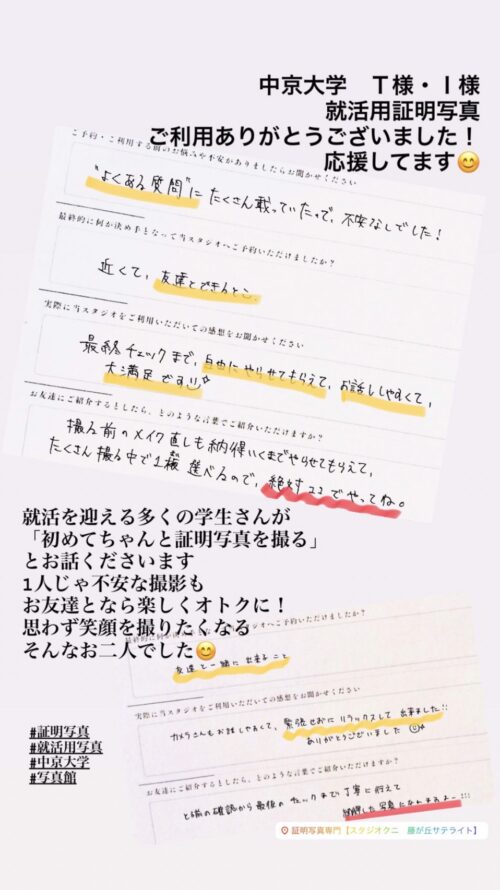 中京大学　T様・I様
就活用証明写真
ご利用ありがとうございました！
応援してます😊
ご予約・ご利用する前のお悩みや不安がありましたらお聞かせください
"よくある質問"に たくさん載っていたので、不安なしでした！
最終的に何が決め手となって当スタジオへご予約いただけましたか？
近くて、友達とできるとこ
実際に当スタジオをご利用いただいての感想をお聞かせください
最終チェックまで、自由にやらせてもらえて、お話ししやすくて、
大満足です
お友達にご紹介するとしたら、どのような言葉でご紹介いただけますか？
撮る前のメイク直しも納得いくまでやらせてもらえて、
たくさん撮る中で1番 選べるので、絶対ココでやってね。
就活を迎える多くの学生さんが
「初めてちゃんと証明写真を撮る」
とお話くださいます
1人じゃ不安な撮影も
お友達となら楽しくオトクに！
思わず笑顔を撮りたくなる
そんなお二人でした😊
友達と一緒に出来ること
実際に当スタジオをご利用いただいての感想をお聞かせください
カメラさんもお話しやすくて、緊張せずにリラックスして出来ました!!
ありがとうございました
お友達にご紹介するとしたら、どのような言葉でご紹介いただけますか？
確認から最後のチェックまで丁寧に
#証明写真
#就活用写真
#中京大学
#写真館
証明写真専門【スタジオクニ　藤が丘サテライト】